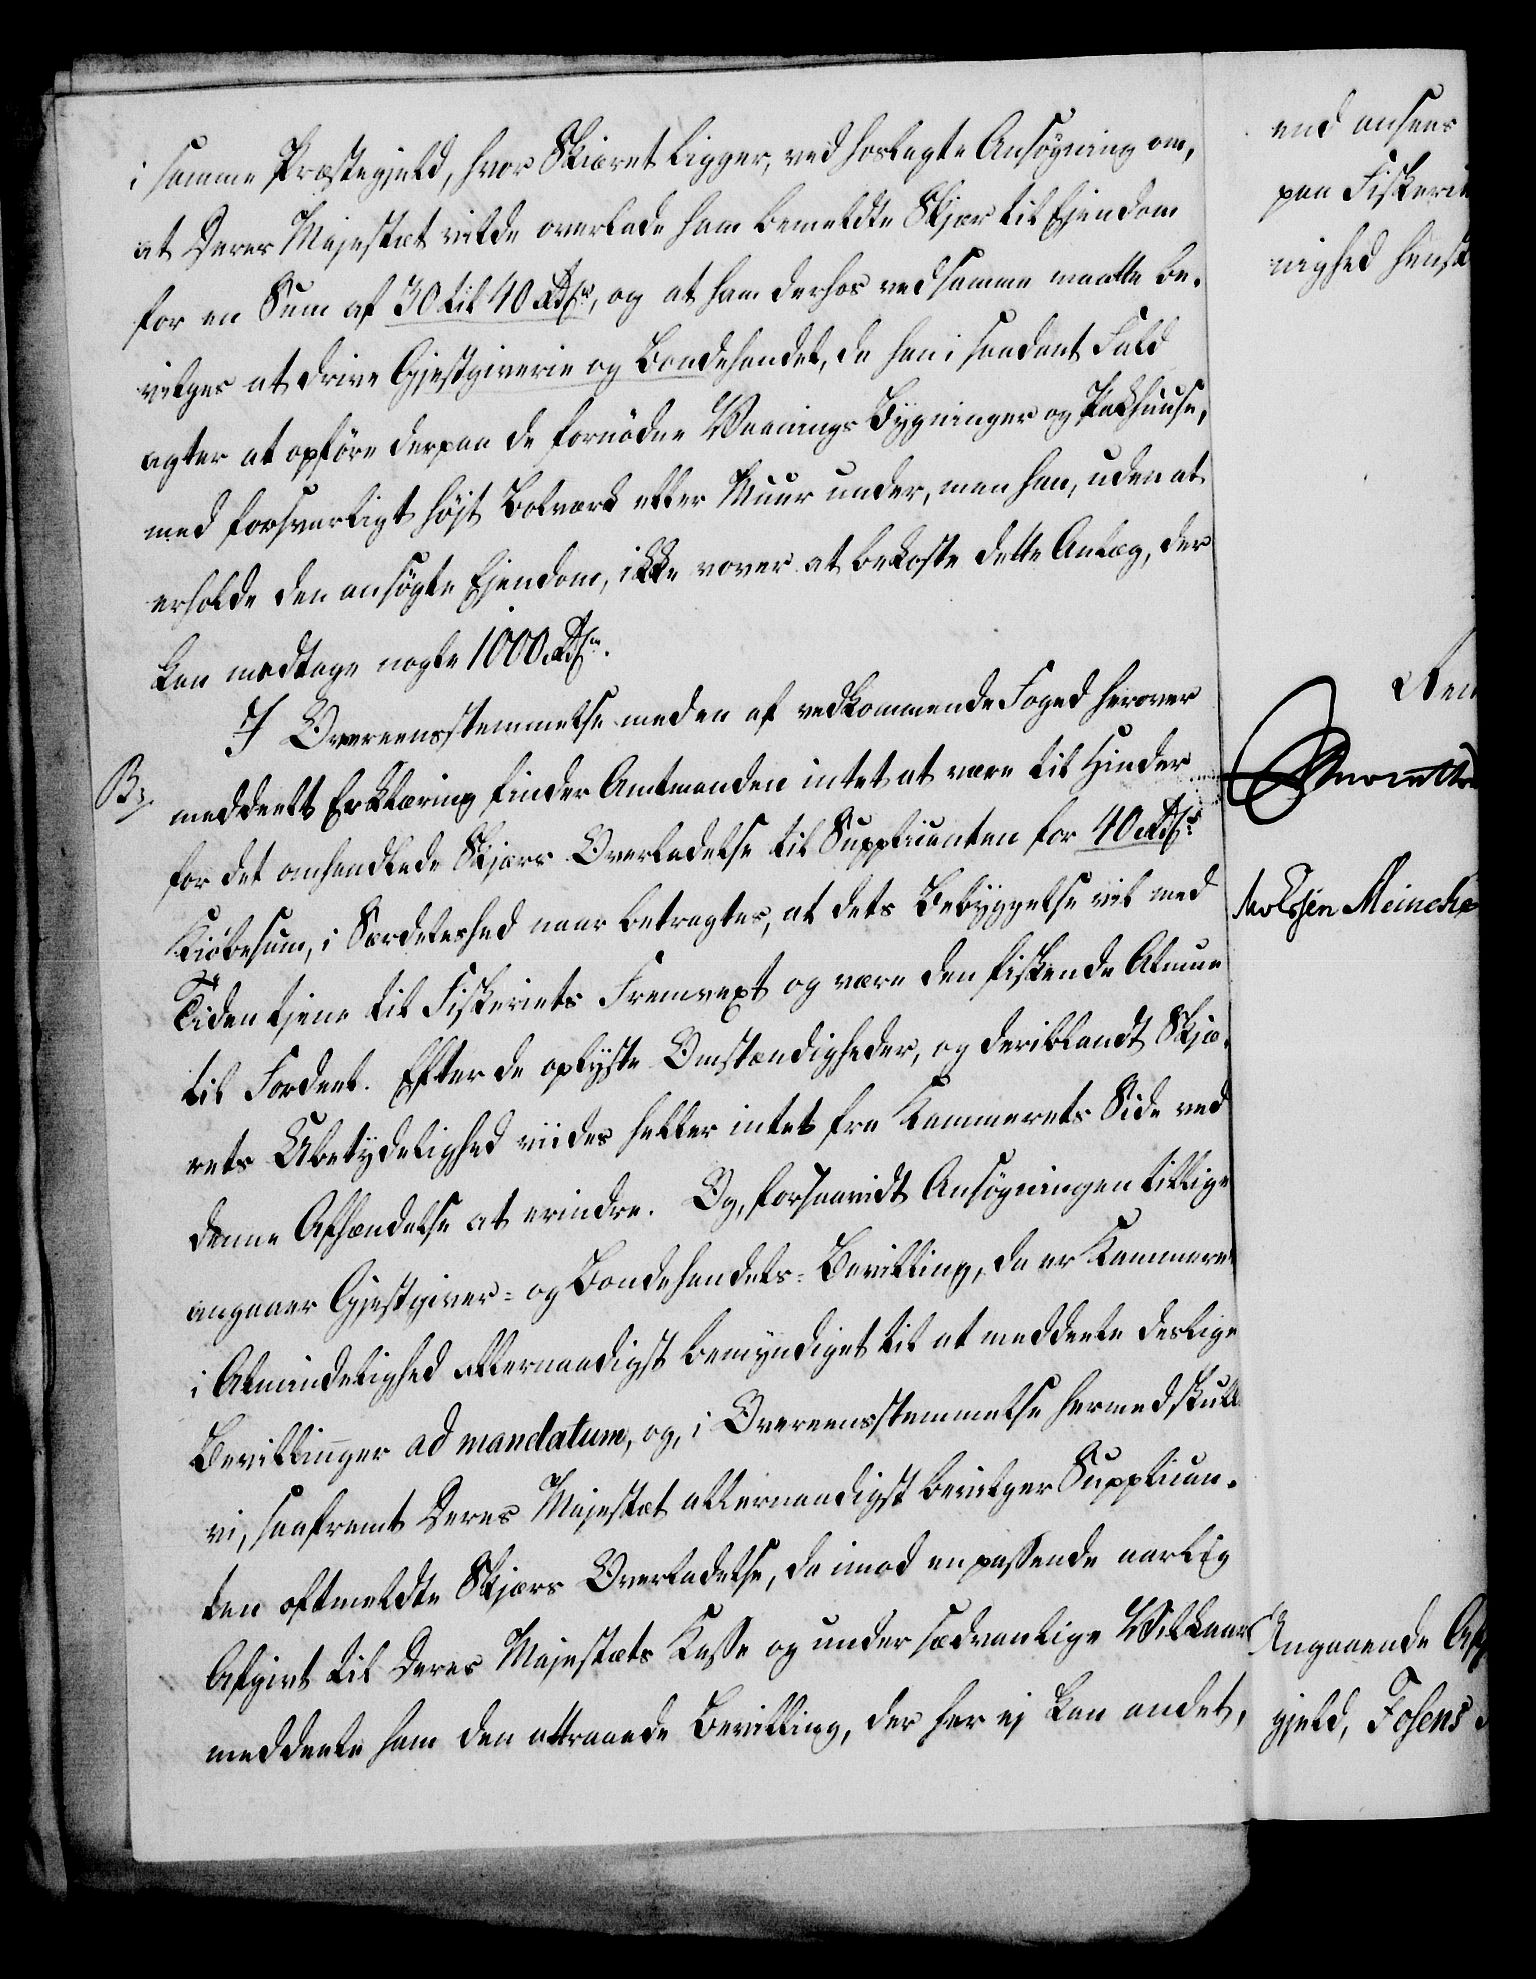 i samme Præstegjeld, hvor Skiæret ligger, ved hoslagte Ansøgning om,
at Deres Majestæt vilde overlade ham bemeldte Skjær til Ejendom
for en Sum af 30 til 40 Rdlr, og at ham derhos ved samme maatte be-
vilges at drive Gjestgiverie og Bondehandel, da han i saadant Fald
agter at opføre derpaa de fornødne Vaanings Bygninger og Pakhuuse,
med forsvarligt høyt Bolværk eller Muur under, men han, uden at
erholde den ansøgte Ejendom, ikke vover at bekoste dette Anlæg, der
kan medtage nogle 1000 Rdlr.
I Overeensstemmelse med en af vedkommende Foged herover
B.
meddeelt Erklæring finder Amtmanden intet at være til Hinder
for det omhandlede Skjærs Overladelse til Supplicanten for 40 Rdlr
Kiøbesum, i Særdeleshed naar betragtes, at dets Bebyggelse vil med
Tiden tjene til Fiskeriets Fremvext og være den fiskende Almue
til Fordeel. Efter de oplyste Omstændigheder, og deriblandt Skjæ-
rets Ubetydelighed viides heller intet fra Kammerets Side ved
denne Afhændelse at erindre. Og, forsaavidt Ansøgningen tillige
angaaer Gjestgiver- og Bondehandels-Bevilling, da er Kammeret
i Almindelighed allernaadigst bemyndiget til at meddeele deslige
Bevillinger ad mandatum, og, i Overeensstemmelse hermed skulle
vi, saafremt Deres Majestæt allernaadigst bevilger Supplican-
ten oftmeldte Skjærs Overladelse, da imod en passende aarlig
Afgivt til Deres Majestæts Kasse og under sædvanlige Vilkaar
meddeele ham den attraaede Bevilling, der her ej kan andet,
end ansees
paa Fiskerie
nighed henst
Ren
Meinche
Angaaende Af
gjeld, Fosens